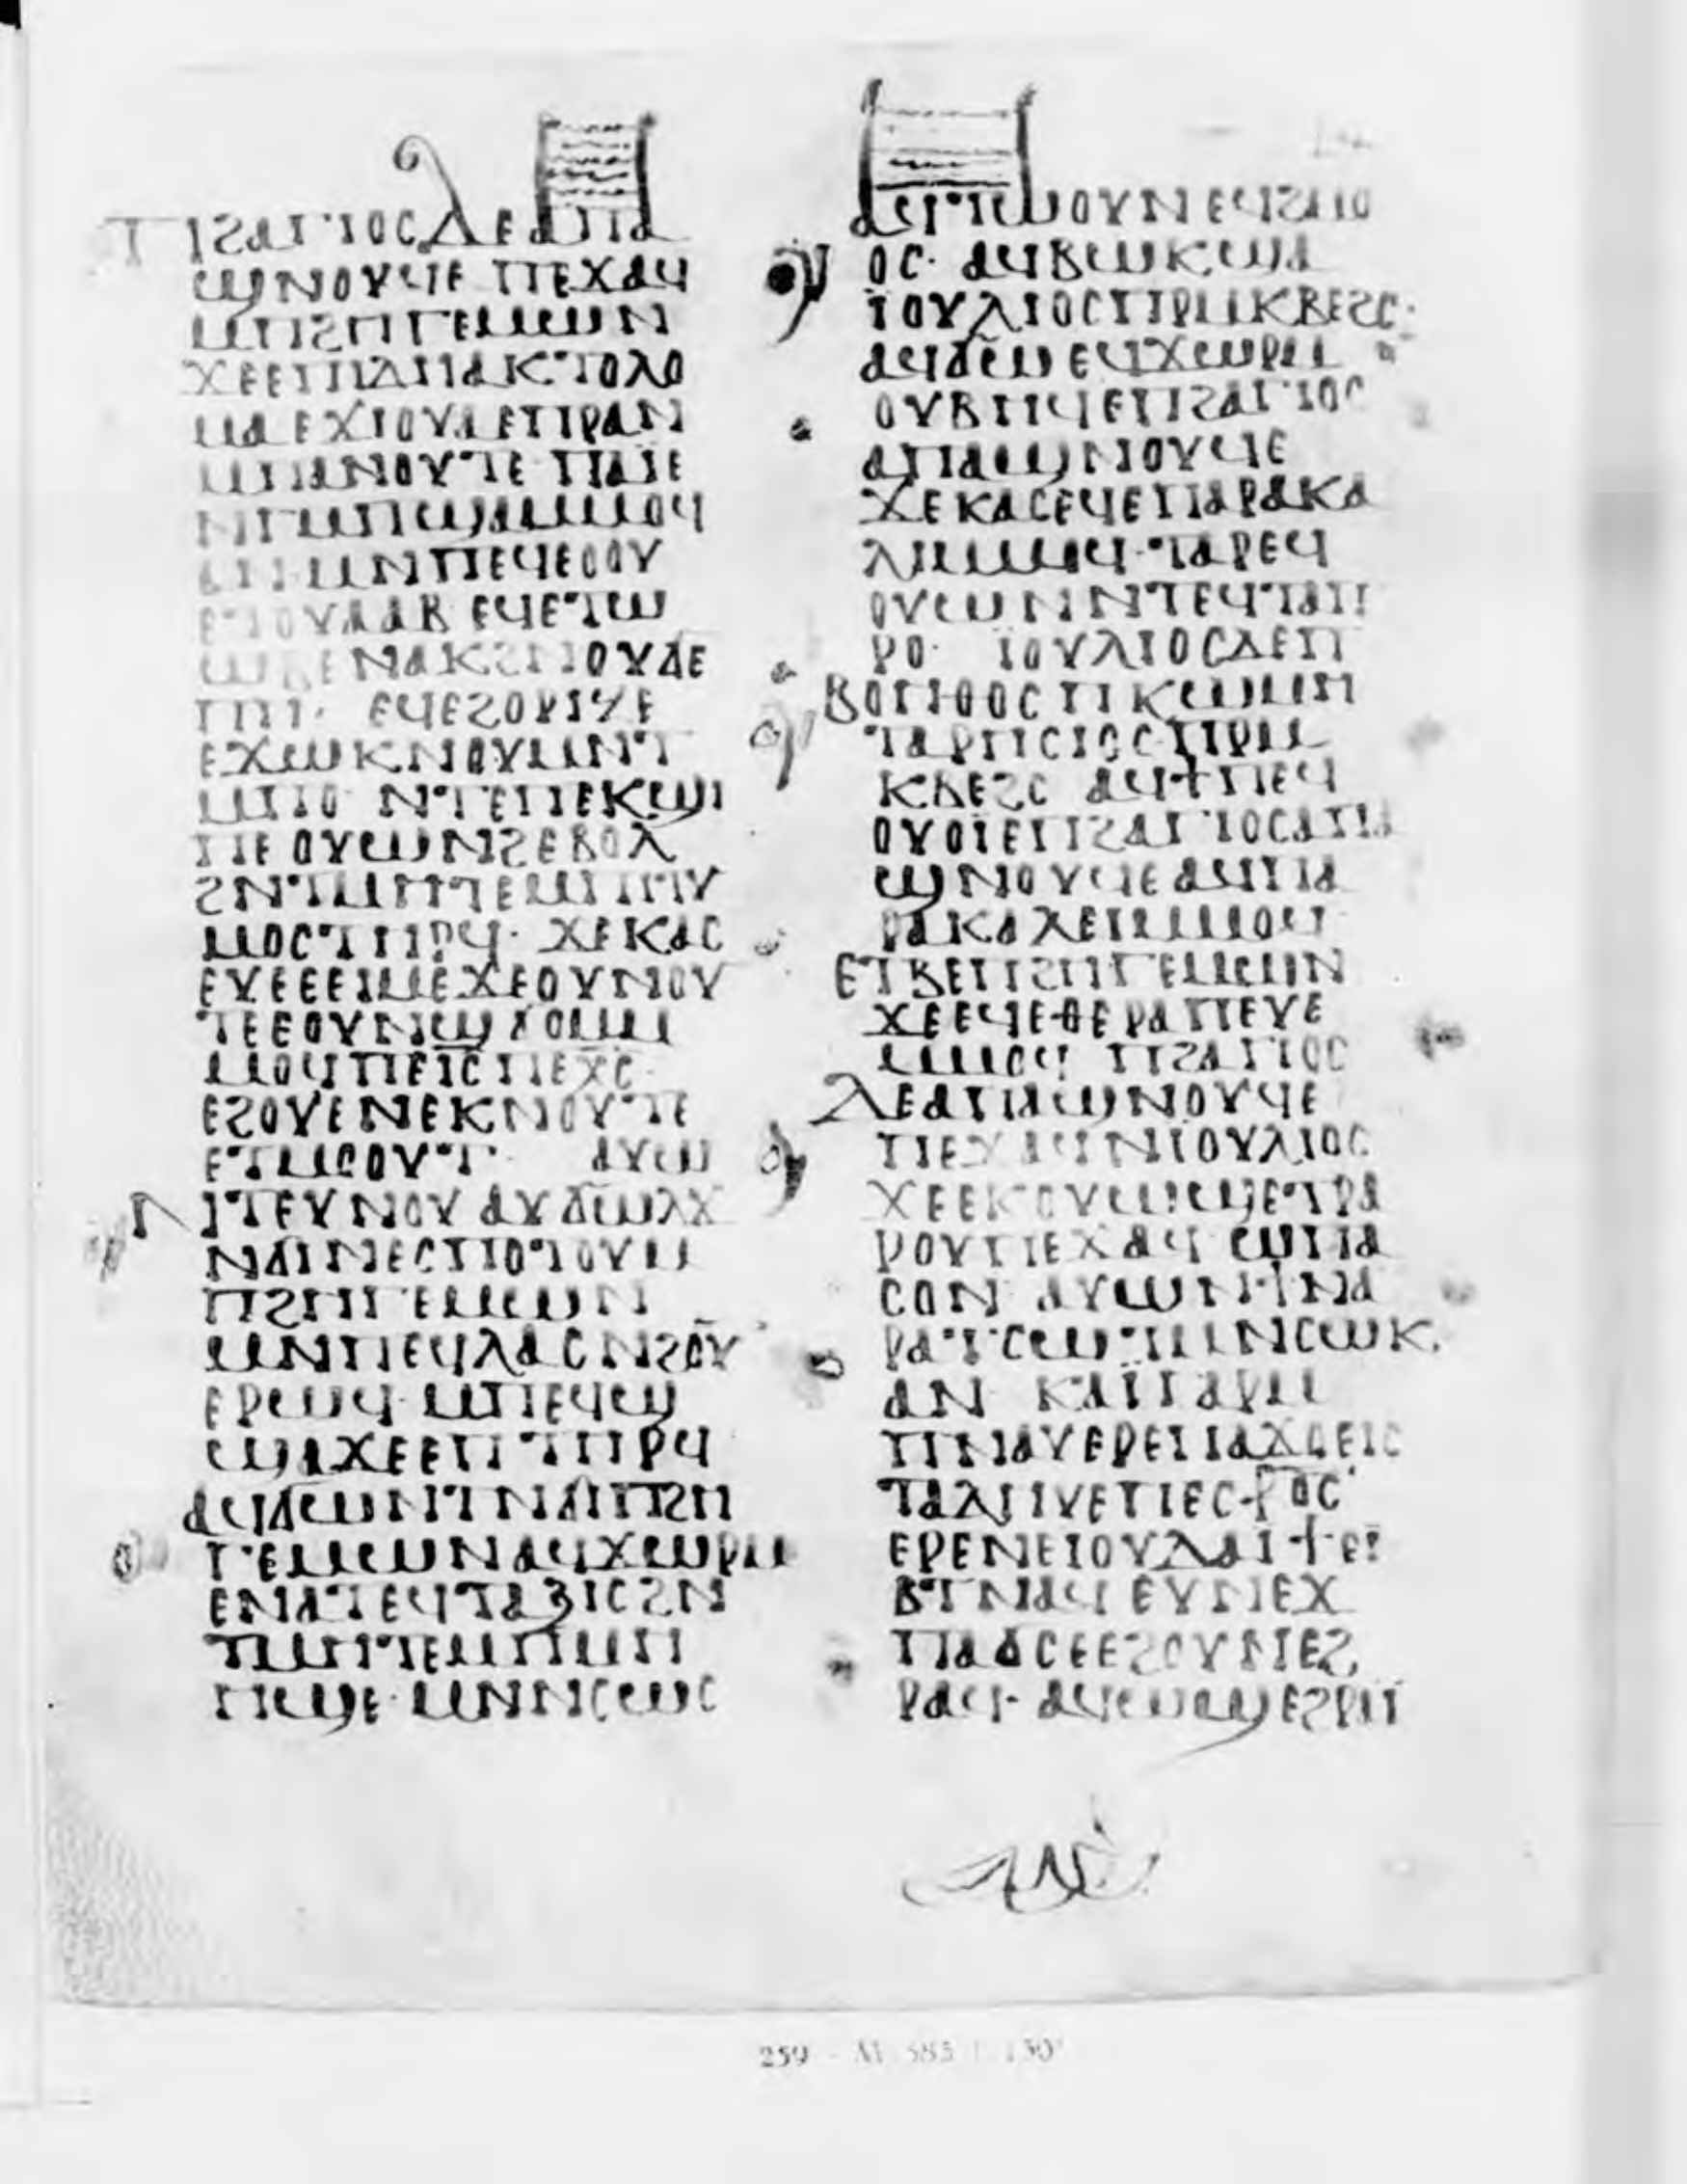 ⲡϩⲁⲅⲓⲟⲥⲇⲉⲁⲡⲁ
ϣⲛⲟⲩϥⲉ ⲡⲉϫⲁϥ
ⲙⲡϩⲏⲅⲉⲙⲱⲛ
ϫⲉⲉⲡⲓⲇⲏⲁⲕⲧⲟⲗⲙⲁ
ⲉϫⲓⲟⲩⲁ ⲉⲡⲣⲁⲛ
ⲙⲡⲁⲛⲟⲩⲧⲉ ⲡⲁⲓ̈ⲉ
ⲛⲅⲙⲡϣⲁⲙⲙⲟϥ
ⲁⲛ ⲙⲛⲡⲉϥⲉⲟⲟⲩ
ⲉⲧⲟⲩⲁⲁⲃ ⲉϥⲉⲧⲱ
ⲙⲛⲉ ⲛⲁⲕϩⲛⲟⲩⲇⲉ
ⲡⲏ· ⲉϥⲉϩⲟⲣⲓⲍⲉ
ⲉϫⲱⲕⲛⲟⲩⲙⲛⲧ
ⲙⲡⲟ ⲛⲧⲉⲡⲉⲕϣⲓ
ⲡⲉ ⲟⲩⲱⲛϩⲉⲃⲟⲗ
ϩⲛⲧⲙⲏⲧⲉⲙⲡⲙⲏ
ⲙⲟⲥⲧⲏⲣϥ· ϫⲉⲕⲁⲥ
ⲉⲩⲉⲉⲓⲙⲉϫⲉⲟⲩⲛⲟⲩ
ⲧⲉⲉⲟⲩⲛϣϭⲟⲙⲙ
ⲙⲟϥⲡⲉⲓ̅ⲥ̅ⲡⲉⲭ̅ⲥ̅
ⲉϩⲟⲩⲉⲛⲉⲕⲛⲟⲩⲧⲉ
ⲉⲧⲙⲟⲟⲩⲧ· ⲁⲩⲱ
ⲛⲧⲉⲩⲛⲟⲩ ⲁⲩϭⲱⲗϫ
ⲛϭⲓⲛⲉⲥⲡⲟⲧⲟⲩⲙ
ⲡϩⲏⲅⲉⲙⲱⲛ
ⲙⲛⲡⲉϥⲗⲁⲥⲛϩⲟⲩ
ⲉⲣⲱϥ· ⲙⲡⲉϥϣ
ϣⲁϫⲉⲉⲡⲧⲏⲣϥ
ⲁϥϭⲱⲛⲧⲛϭⲓⲡϩⲏ
ⲅⲉⲙⲱⲛⲁϥϫⲱⲣⲙ
ⲉⲛⲁⲧⲉϥⲧⲁⲝⲓⲥϩⲛ
ⲧⲙⲏⲧⲉⲙⲡⲙⲏ
ⲏϣⲉ· ⲙⲛⲛⲥⲱⲥ
ⲁϥⲧⲱⲟⲩⲛⲉϥϩⲡⲟ
ⲟⲥ· ⲁϥⲃⲱⲕϣⲁ
ⲓ̈ⲟⲩⲗⲓⲟⲥⲡⲣⲙⲕⲃⲉϩⲥ·
ⲁϥϭⲱ ⲉϥϫⲱⲣⲙ
ⲟⲩⲃⲏϥⲉⲡϩⲁⲅⲓⲟⲥ
ⲁⲡⲁϣⲛⲟⲩϥⲉ
ϫⲉⲕⲁⲥⲉϥⲉⲡⲁⲣⲁⲕⲁ
ⲗⲓⲙⲙⲟϥ·ⲧⲁⲣⲉϥ
ⲟⲩⲱⲛ ⲛⲧⲉϥⲧⲁⲡ
ⲣⲟ· ⲓ̈ⲟⲩⲗⲓⲟⲥⲇⲉⲡ
ⲃⲟⲏⲑⲟⲥⲡⲕⲱⲙⲏ
ⲧⲁⲣⲏⲥⲓⲟⲥⲡⲣⲙ
ⲕⲃⲉϩⲥ ⲁϥϯⲡⲉϥ
ⲟⲩⲟⲓ̈ⲉⲡϩⲁⲅⲓⲟⲥⲁⲡⲁ
ϣⲛⲟⲩϥⲉⲁϥⲡⲁ
ⲣⲁⲕⲁⲗⲉⲓⲙⲙⲟϥ
ⲉⲧⲃⲉⲡϩⲏⲅⲉⲙⲱⲛ
ϫⲉⲉϥⲉⲑⲉⲣⲁⲡⲉⲩⲉ
ⲙⲙⲟϥ ⲡϩⲁⲅⲓⲟⲥ
ⲇⲉⲁⲡⲁϣⲛⲟⲩϥⲉ
ⲡⲉϫⲁϥⲛⲓ̈ⲟⲩⲗⲓⲟⲥ
ϫⲉⲉⲕⲟⲩⲱϣⲉⲧⲣⲁ
ⲣⲟⲩⲡⲉϫⲁϥ ⲱⲡⲁ
ⲥⲟⲛ ⲁⲩⲱⲛϯⲛⲁ
ⲣⲁⲧⲥⲱⲧⲙⲛⲥⲱⲕ·
ⲁⲛ ⲕⲁⲓ̈ⲅⲁⲣⲙ
ⲡⲛⲁⲩⲉⲣⲉⲡⲁϫⲟⲉⲓⲥ
ⲧⲁⲗⲏⲩⲉⲡⲉⲥⲣⲟⲥ
ⲉⲣⲉⲛⲉⲓⲟⲩⲇⲁⲓ ϯϩⲓ
ⲃⲧⲛⲁϥ ⲉⲩⲛⲉϫ
ⲡⲁϭⲥⲉⲉϩⲟⲩⲛⲉϩ
ⲣⲁϥ· ⲁϥⲱϣⲉϩⲣⲁⲓ̈
259 - M 583 f. 130ʳ